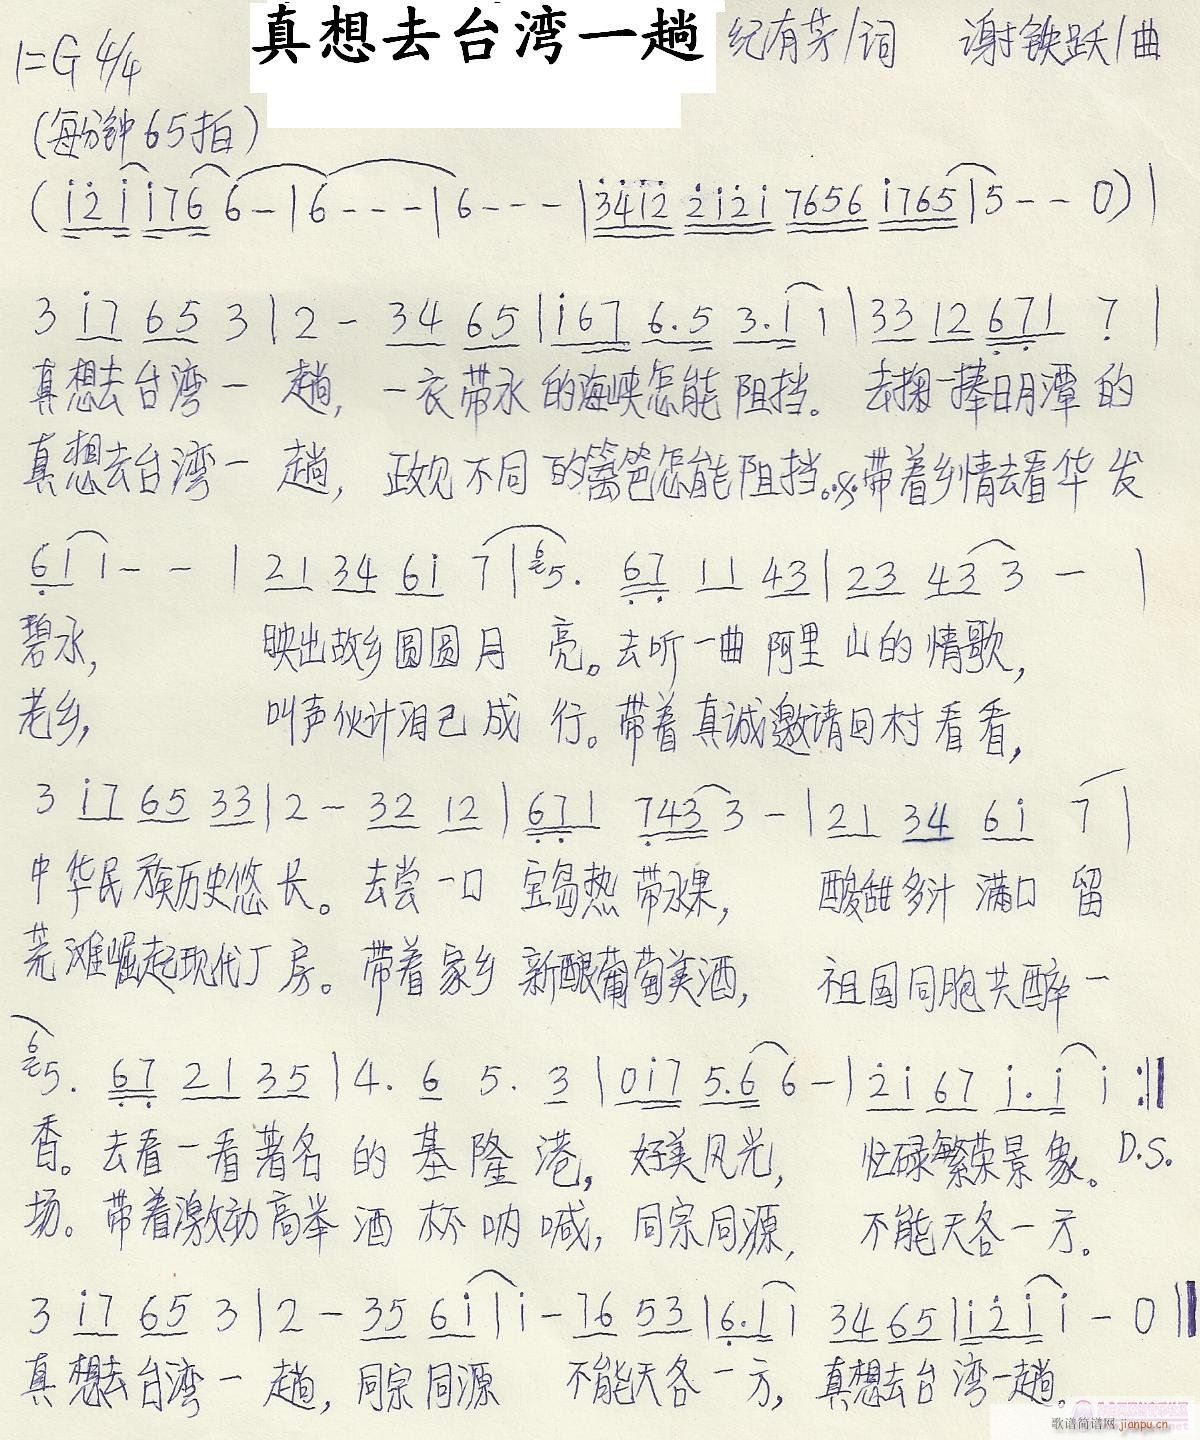 真想去台湾一趟 纪有芳/词 谢铁跃/曲
1=G 4/4
(每分钟65拍)
(i̇2̇i̇ i̇76 6-|6---|6---|3̇4̇i̇2̇ 2̇i̇2̇i̇ 7656 i̇765|5--0)|
3 i̇7 65 3|2- 34 65|i̇67 6.5 3.i̇ i̇|33 12 6̣7̣1 7̣|
真想去台湾一 趟, 一衣带水 的海峡怎能 阻挡。 去掬一捧日月潭 的
真想去台湾一 趟, 政见不同 的篱笆怎能阻挡。带着乡情去看华 发
6̣1 1--|21 34 6i̇ 7|⁶5. 6̣7̣ 11 43|23 43 3-|
碧水, 映出故乡圆圆月 亮。去听一曲 阿里 山的 情歌,
老乡, 叫声伙计泪已 成 行。带着真诚邀请回村看看,
3 i̇7 65 33|2- 32 12|6̣7̣1 7̣43 3-|21 34 6i̇ 7|
中华民族历史悠长。去尝一口 宝岛热 带水果, 酸甜多汁 满口 留
荒滩崛起现代厂房。带着家乡 新酿葡萄美酒, 祖国同胞共醉一
⁶5. 6̣7̣ 21 35|4. 6 5. 3|0i̇7 5.6 6-|2̇i̇ 67 i̇.i̇ i̇:‖
香。去看一看著名 的 基 隆 港, 好美风光, 忙碌繁荣景象。D.S.
场。带着激动高举 酒 杯 呐 喊, 同宗同源, 不能天各一方。
3 i̇7 65 3|2- 35 6i̇|i̇- 76 53|6.i̇ i̇ 34 65|i̇2̇i̇ i̇-0‖
真想去台湾一 趟, 同宗同源 不能天各一方, 真想去台湾一趟。
歌谱简谱网 jianpu.cn